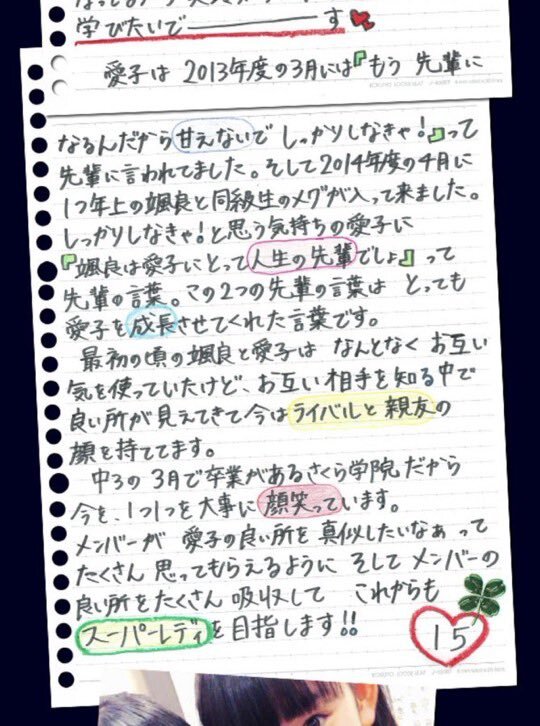 学びたいで――――す
愛子は 2013年度の3月には『もう 先輩に
なるんだから甘えないで しっかりしなきゃ!』って
先輩に言われてました。そして2014年度の4月に
1つ年上の颯良と同級生のメグが入って来ました。
しっかりしなきゃ!と思う気持ちの愛子に
『颯良は愛子にとって人生の先輩でしょ』って
先輩の言葉。この2つの先輩の言葉は とっても
愛子を成長させてくれた言葉です。
最初の頃の颯良と愛子は なんとなく お互い
気を使っていたけど、お互い相手を知る中で
良い所が見えてきて今はライバルと親友の
顔を持ててます。
中3の 3月で卒業があるさくら学院だから
今を、1つ1つを大事に顔笑っています。
メンバーが 愛子の良い所を真似したいなぁ って
たくさん 思ってもらえるように そして メンバーの
良い所をたくさん 吸収して これからも
スーパーレディを目指します!!
15